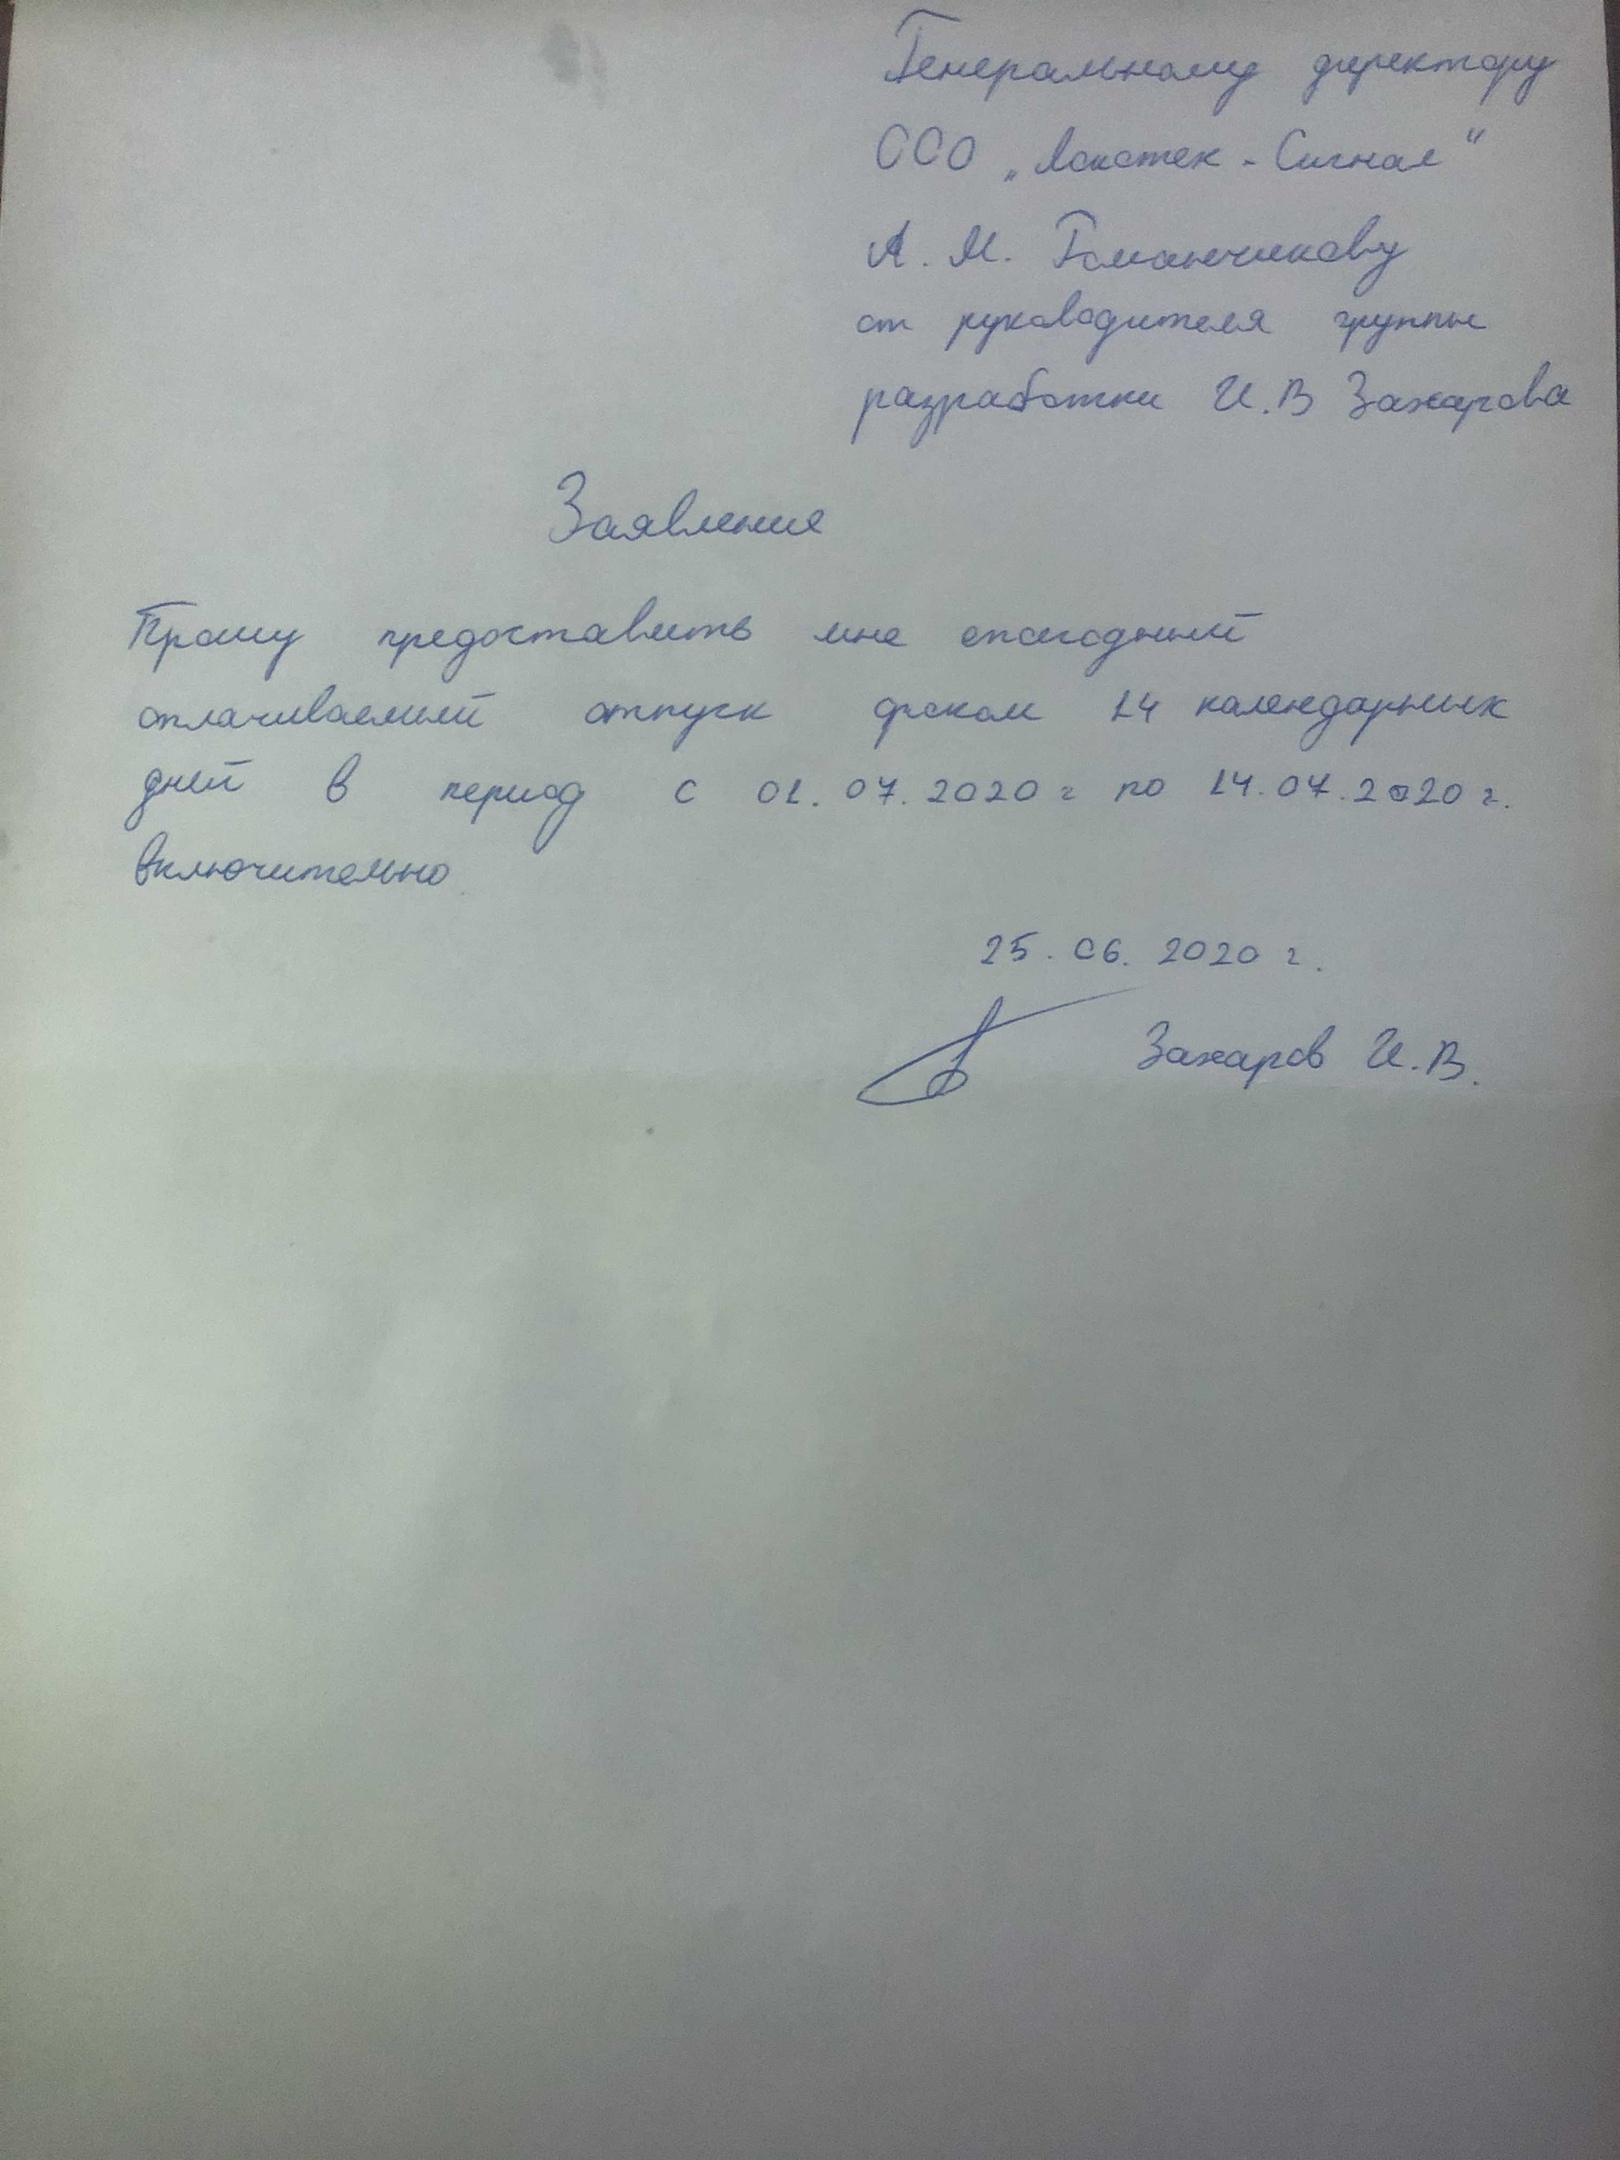 Генеральному директору
ООО „Локотек - Сигнал“
А. М. Романчикову
от руководителя группы
разработки И.В Захарова
Заявление
Прошу предоставить мне ежегодный
оплачиваемый отпуск сроком 14 календарных
дней в период с 01.07.2020 г по 14.07.2020 г.
включительно
25.06.2020 г.
Захаров И.В.